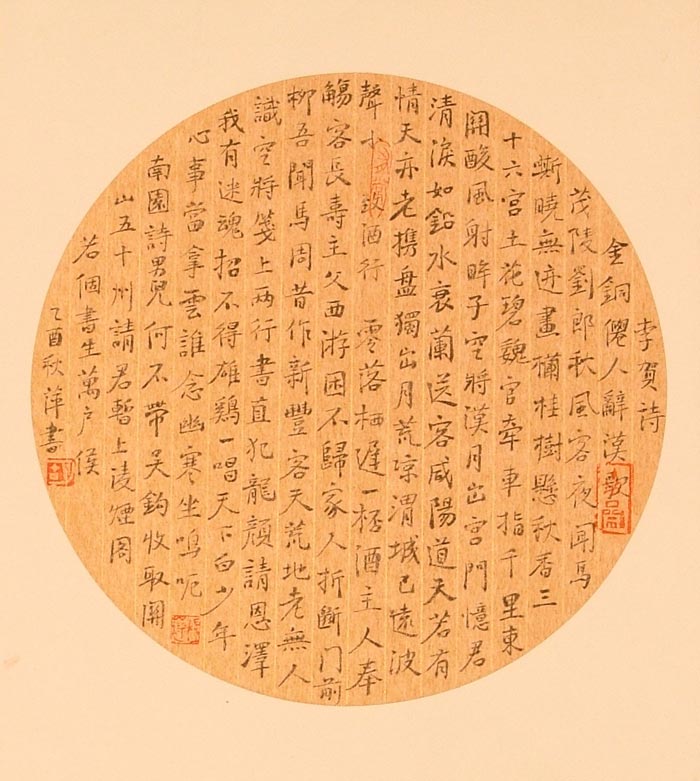 李賀詩
金銅僊人辭漢歌
茂陵劉郎秋風客夜聞馬
嘶曉無迹畫欄桂樹懸秋香三
十六宮土花碧魏官牽車指千里東
關酸風射眸子空將漢月出宮門憶君
清淚如鉛水衰蘭送客咸陽道天若有
情天亦老攜盤獨出月荒涼渭城已遠波
聲小 致酒行 零落栖遲一桮酒主人奉
觴客長壽主父西游困不歸家人折斷门前
柳吾聞馬周昔作新豐客天荒地老無人
識空將箋上两行書直犯龍顏請恩澤
我有迷魂招不得雄鷄一唱天下白少年
心事當拿雲誰念幽寒坐鳴呃
南園詩男兒何不帶吴鈎收取關
山五十州請君暫上淩煙閣
若個書生萬户侯
乙酉秋萍書